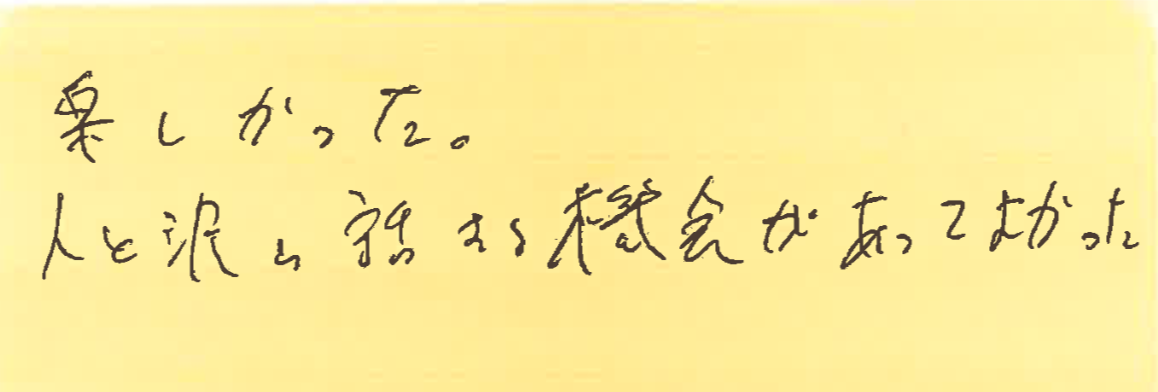 楽しかった。
人と沢山話する機会があってよかった